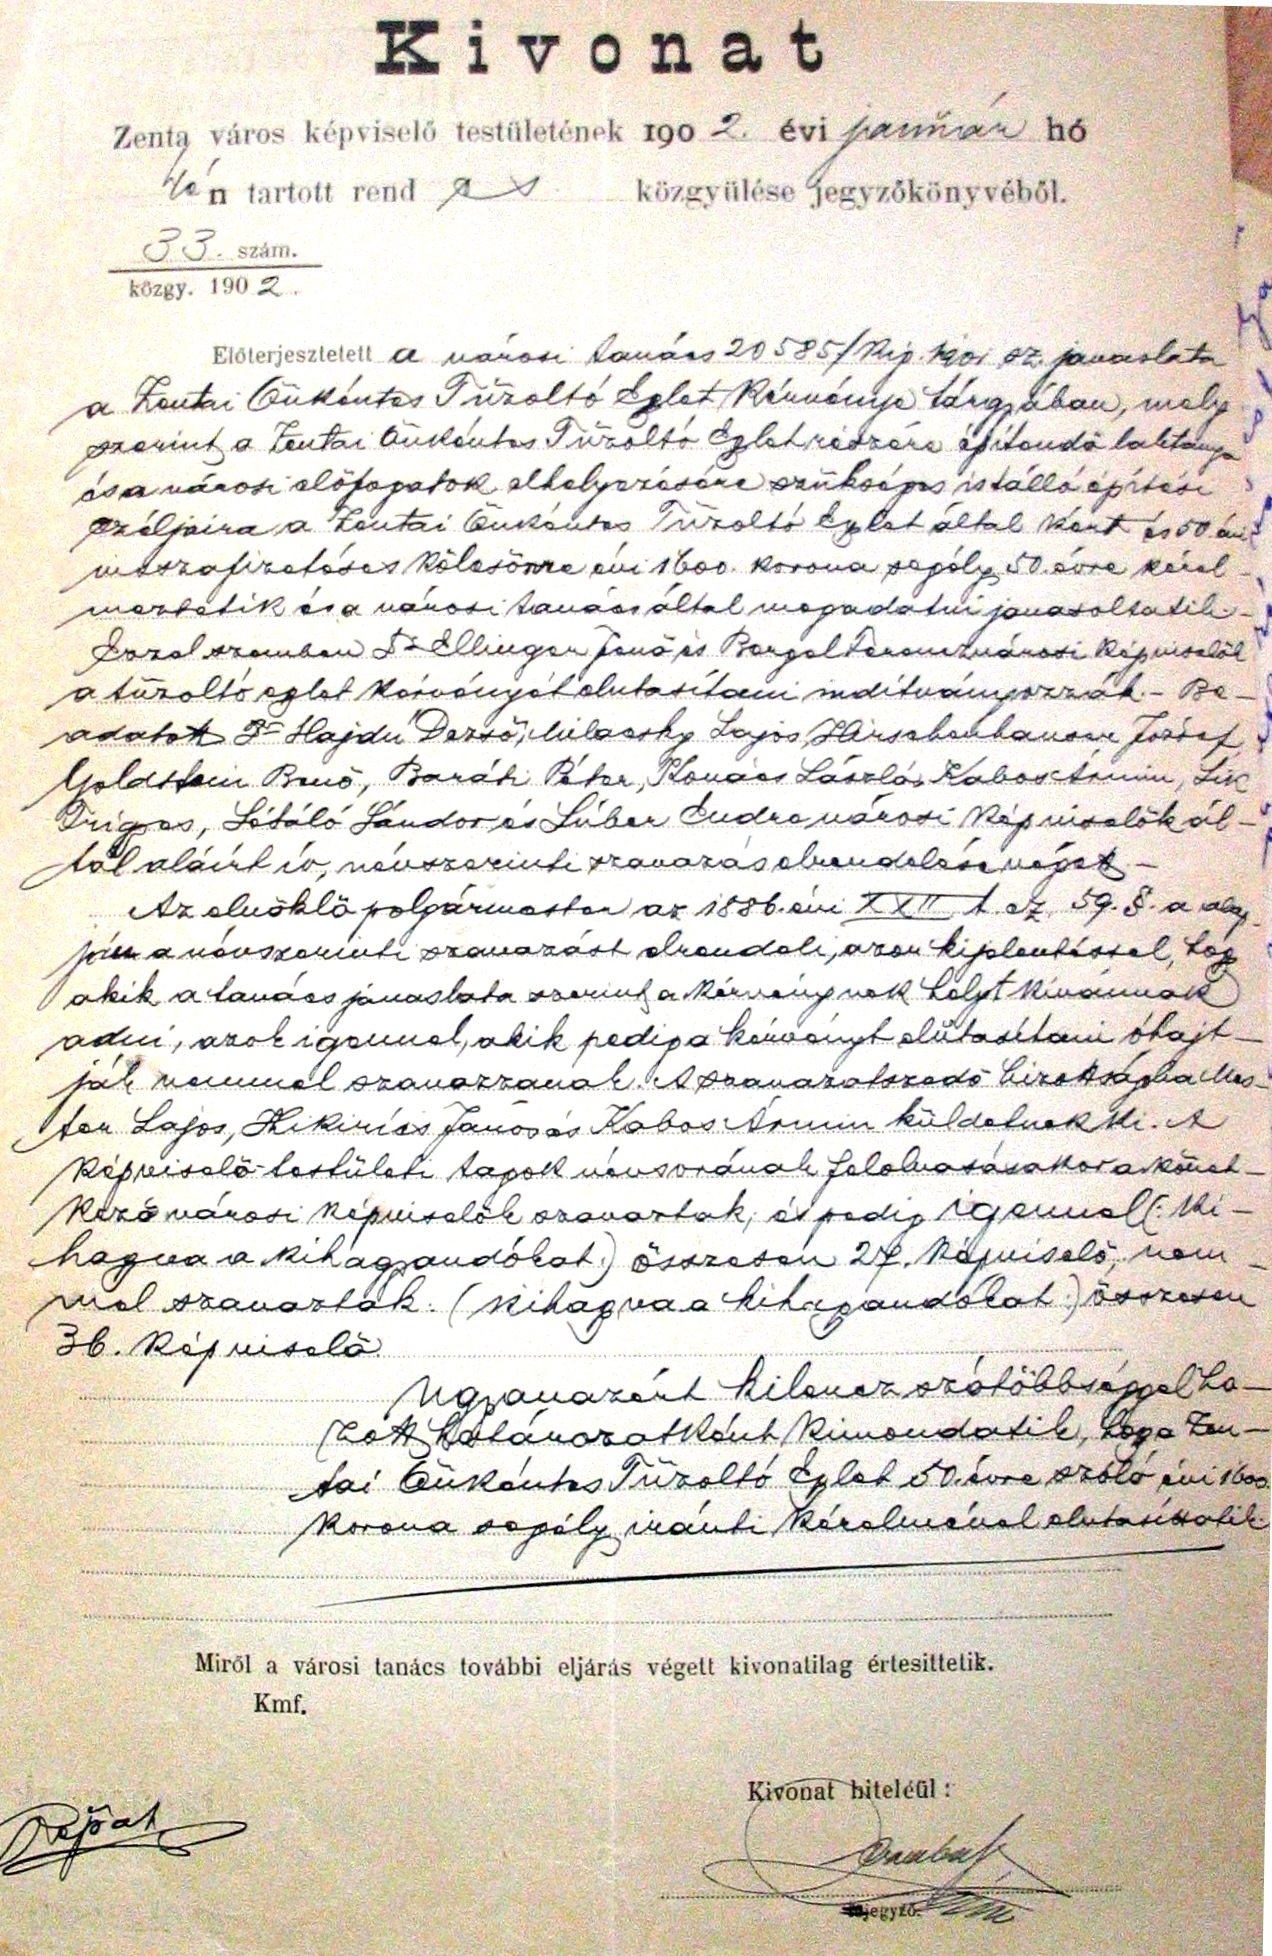 Kivonat
Zenta város képviselő testületének 1902. évi január hó
én tartott rendes közgyülése jegyzőkönyvéből.
33. szám.
közgy. 1902.
Előterjesztetett a városi tanács 20585/ 1901 sz. javaslata
a Zentai Önkéntes Tüzoltó Eglet kérvénye tárgyában, mely
szerint a Zentai Önkéntes Tüzoltó Eglet részére épitendő laktanya
és a városi előfogatok elhelyezésére szükséges istálló épitési
czéljaira a Zentai Önkéntes Tüzoltó Eglet által kért és 50 évi
visszafizetéses kölcsönre évi 1600 korona segély 50 évre kérel-
meztetik és a városi tanács által megadatni javasoltatik.-
Ezzel szemben Dr Ellinger Jenő és Bergel Ferencz városi képviselők
a tüzoltó eglet kérvényét elutasítani inditványozzák.- Be-
adatott Dr Hajdu Dezső, Milassky Lajos, Hirschenhauser József,
Goldstein Benő, Baráti Péter, Kovács László, Kabos Ármin, Sík
Frigyes, Létáló Sándor és Lúber Endre városi képviselők ál-
tal aláirt iv, névszerinti szavazás elrendelése végett.-
Az elnöklő polgármester az 1886. évi XXII t. cz. 59. §. a alap-
ján a névszerinti szavazást elrendeli, azon kijelentéssel, hogy
akik a tanács javaslata szerint a kérvénynek helyt kívánnak
adni, azok igennel, akik pedig a kérvényt elutasítani óhajt-
ják nemmel szavazzanak. A szavazatszedő bizottságba Mes-
ter Lajos, János és Kabos Ármin küldetnek ki. A
képviselő-testületi tagok névsorának felolvasásakor a követ-
kező városi képviselők szavaztak, és pedig igennel (: ki-
hagyva a kihagyandókat:) összesen 27. képviselő, nem-
mel szavaztak. (: kihagyva a kihagyandókat :) összesen
36. képviselő.
Ugyanazért kilencz szótöbbséggel ho-
zott határozatként kimondatik, hogy a Zen-
tai Önkéntes Tüzoltó Eglet 50 évre szóló évi 1600
korona segély iránti kérelmével elutasíttatik.
Miről a városi tanács további eljárás végett kivonatilag értesittetik.
Kmf.
Kivonat hiteléül:
jegyző.